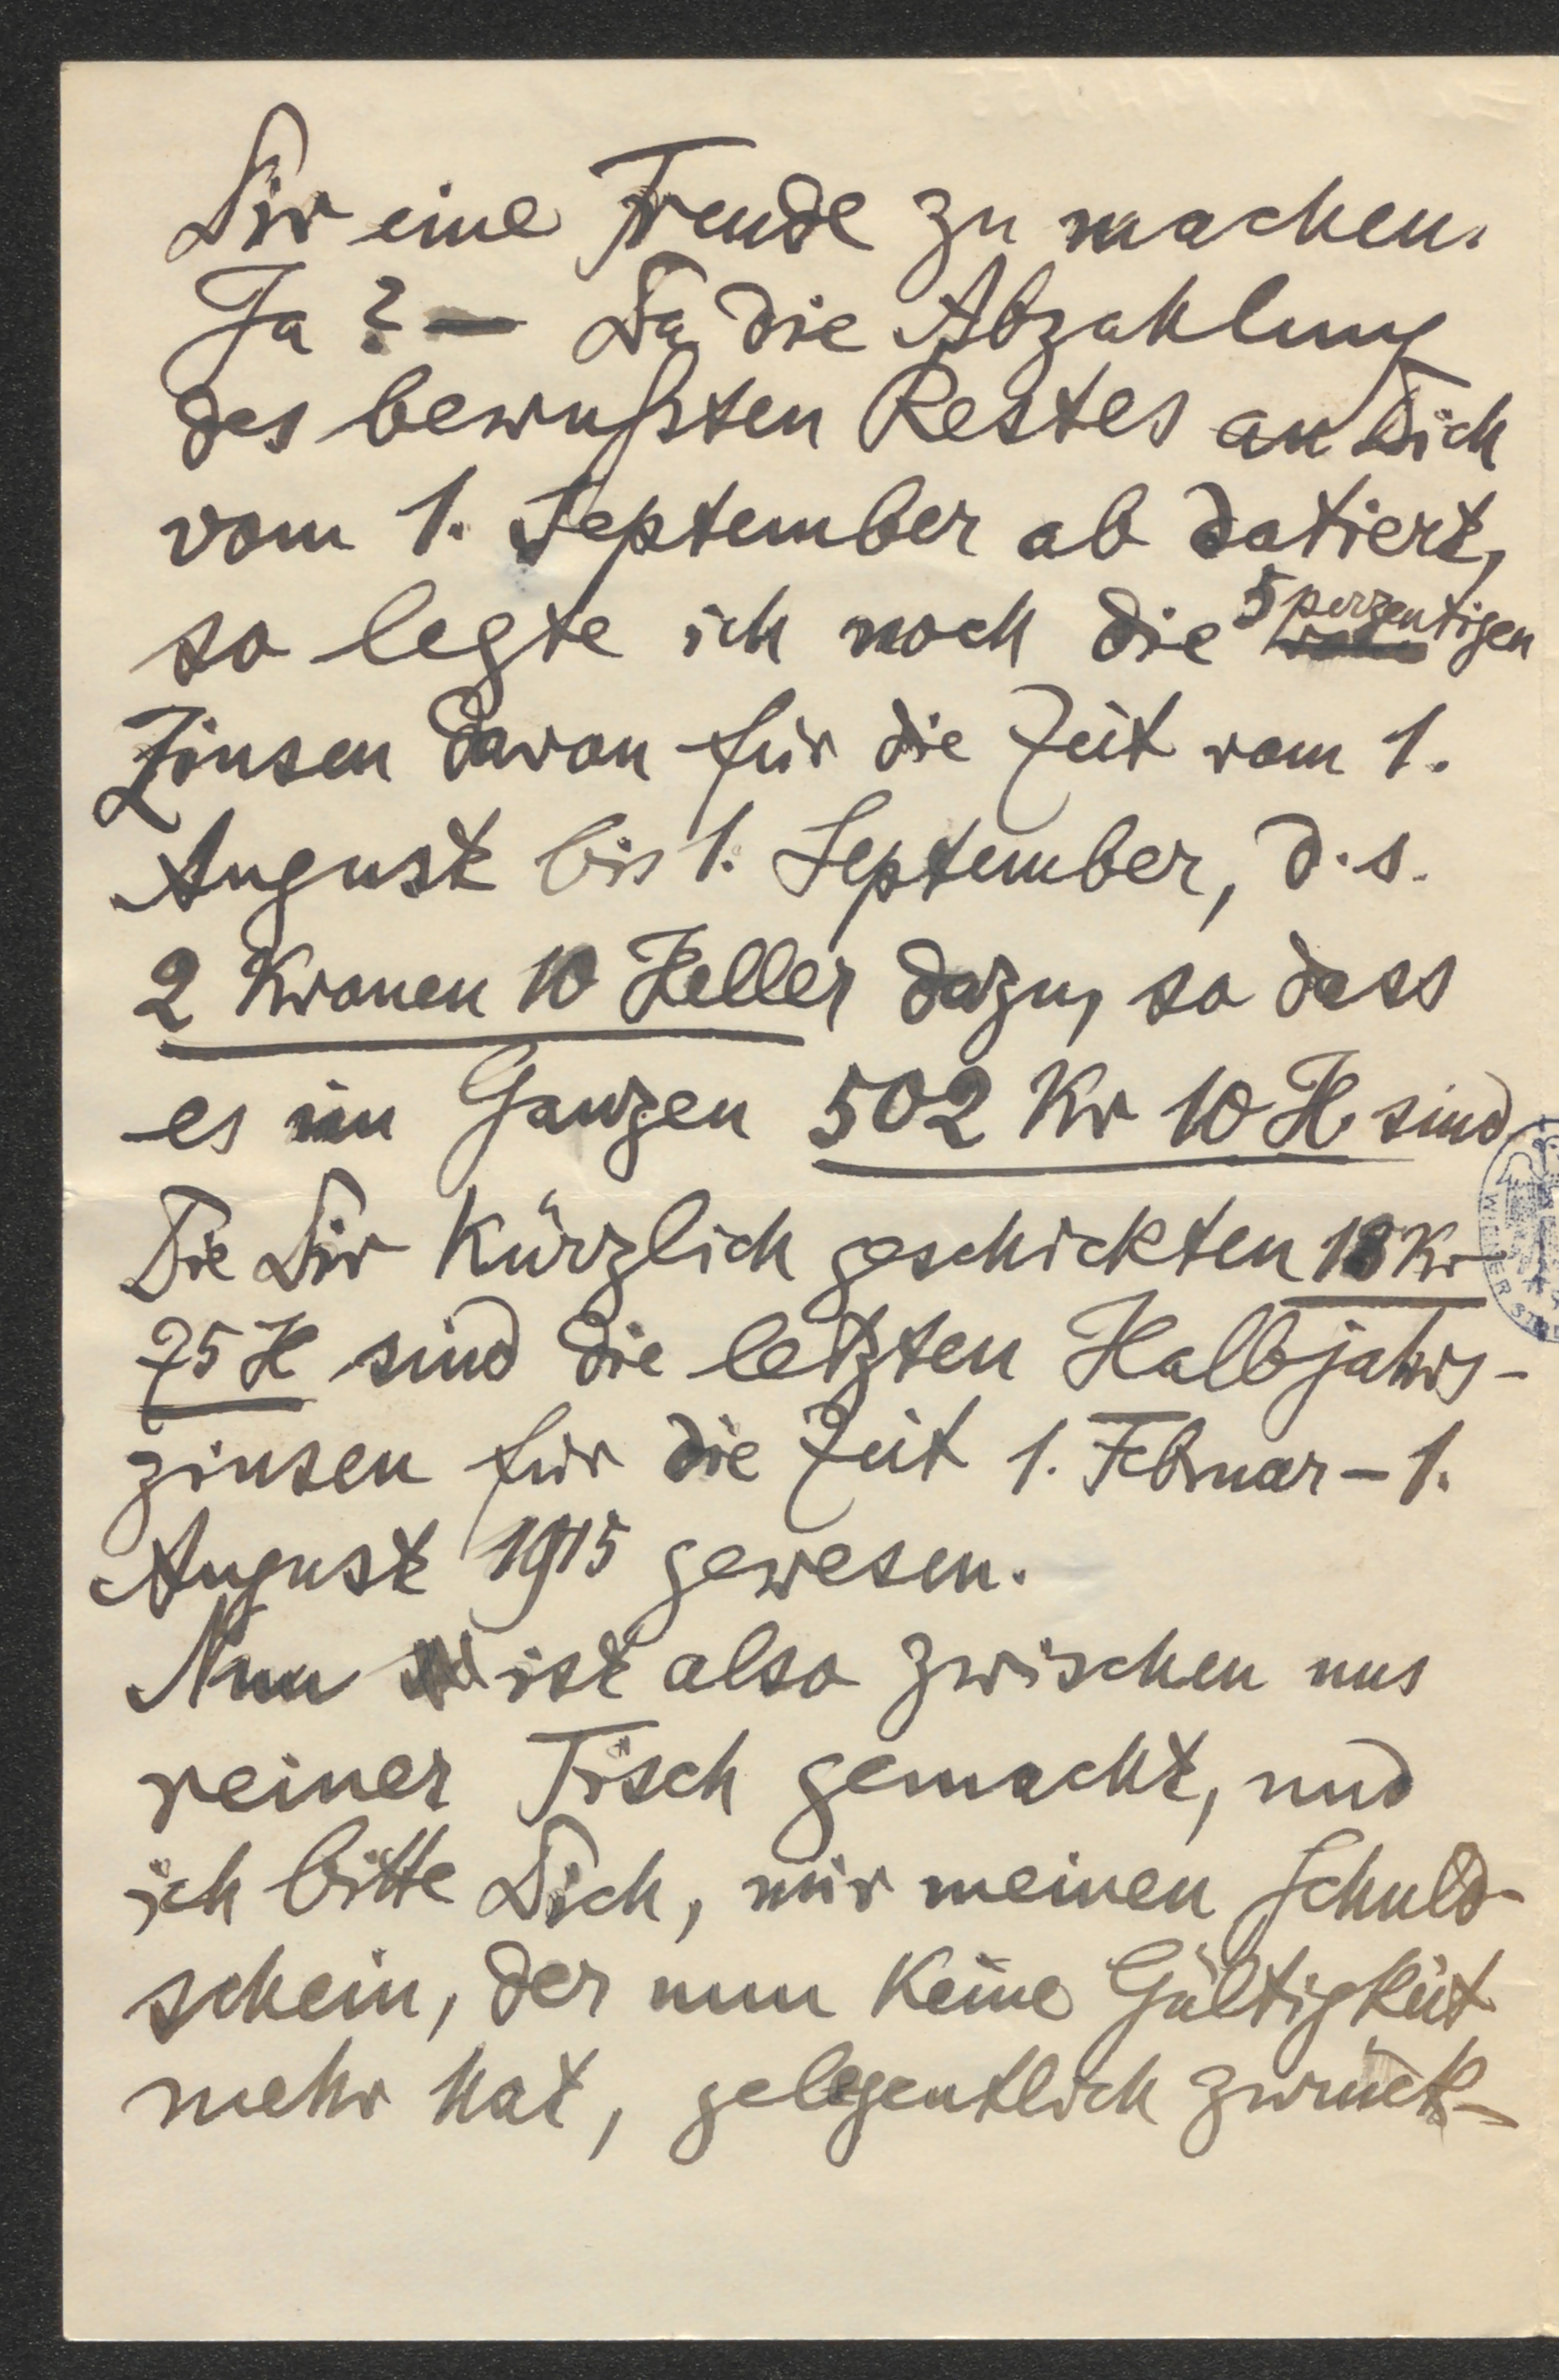 Dir eine Freude zu machen.
Ja? — Da die Abzahlung
des bewußten Restes an Dich
vom 1. September ab datiert,
so legte ich noch die 5perzentigen
Zinsen davon für die Zeit vom 1.
August bis 1. September, d.s.
2 Kronen 10 Heller dazu, so dass
es im Ganzen 502 Kr 10 H. sind
Die Dir kürzlich geschickten 18 Kr
75 H sind die letzten Halbjahrs-
zinsen für die Zeit 1. Februar – 1.
August 1915 gewesen.
Nun ist also zwischen uns
reiner Tisch gemacht, und
ich bitte Dich, mir meinen Schuld-
schein, der nun keine Gültigkeit
mehr hat, gelegentlich zurück-